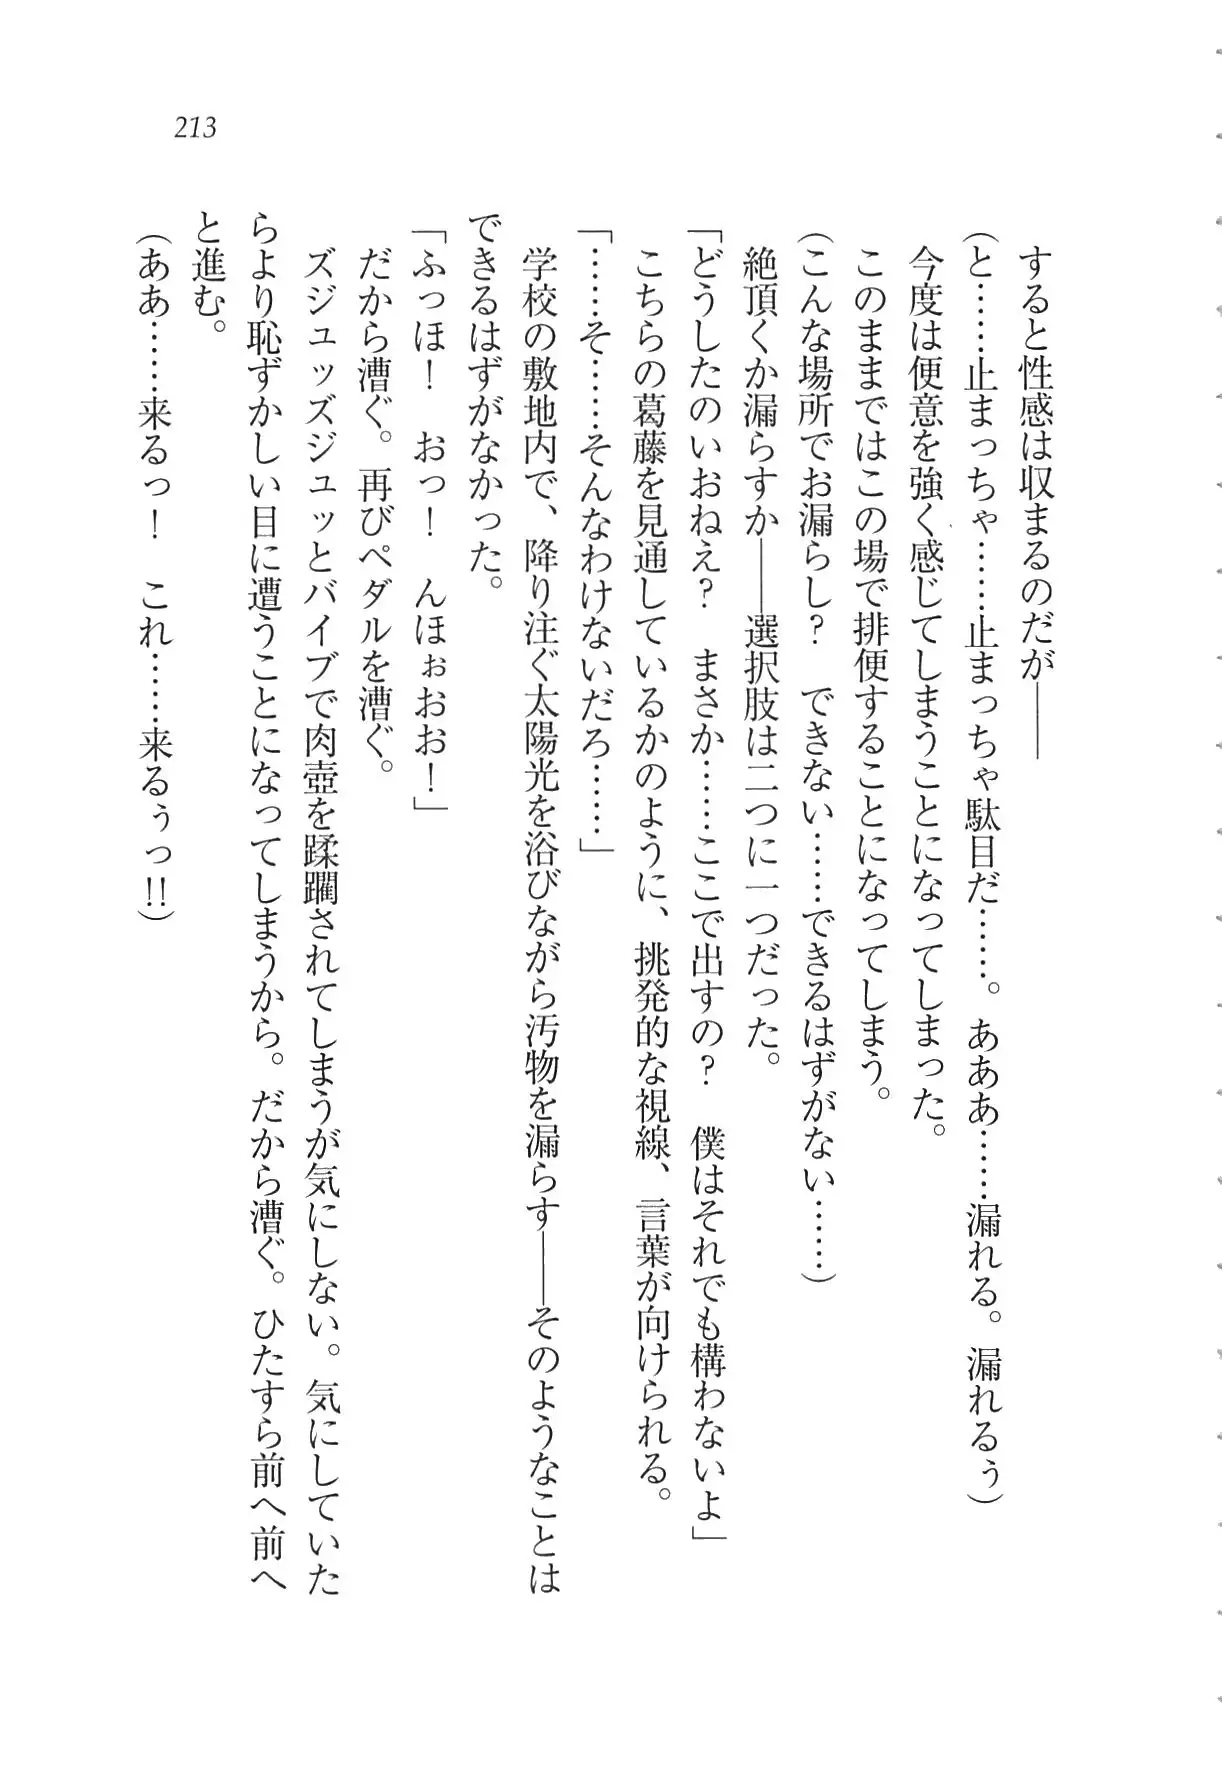 213
すると性感は収まるのだが――
(と……止まっちゃ……止まっちゃ駄目だ……。あああ……漏れる。漏れるぅ)
今度は便意を強く感じてしまうことになってしまった。
このままではこの場で排便することになってしまう。
(こんな場所でお漏らし？　できない……できるはずがない……)
絶頂くか漏らすか――選択肢は二つに一つだった。
「どうしたのいおねえ？　まさか……ここで出すの？　僕はそれでも構わないよ」
こちらの葛藤を見通しているかのように、挑発的な視線、言葉が向けられる。
「……そ……そんなわけないだろ……」
学校の敷地内で、降り注ぐ太陽光を浴びながら汚物を漏らす――そのようなことは
できるはずがなかった。
「ふっほ！　おっ！　んほぉおお！」
だから漕ぐ。再びペダルを漕ぐ。
ズジュッズジュッとバイブで肉壺を蹂躙されてしまうが気にしない。気にしていた
らより恥ずかしい目に遭うことになってしまうから。だから漕ぐ。ひたすら前へ前へ
と進む。
(ああ……来るっ！　これ……来るぅっ!!)